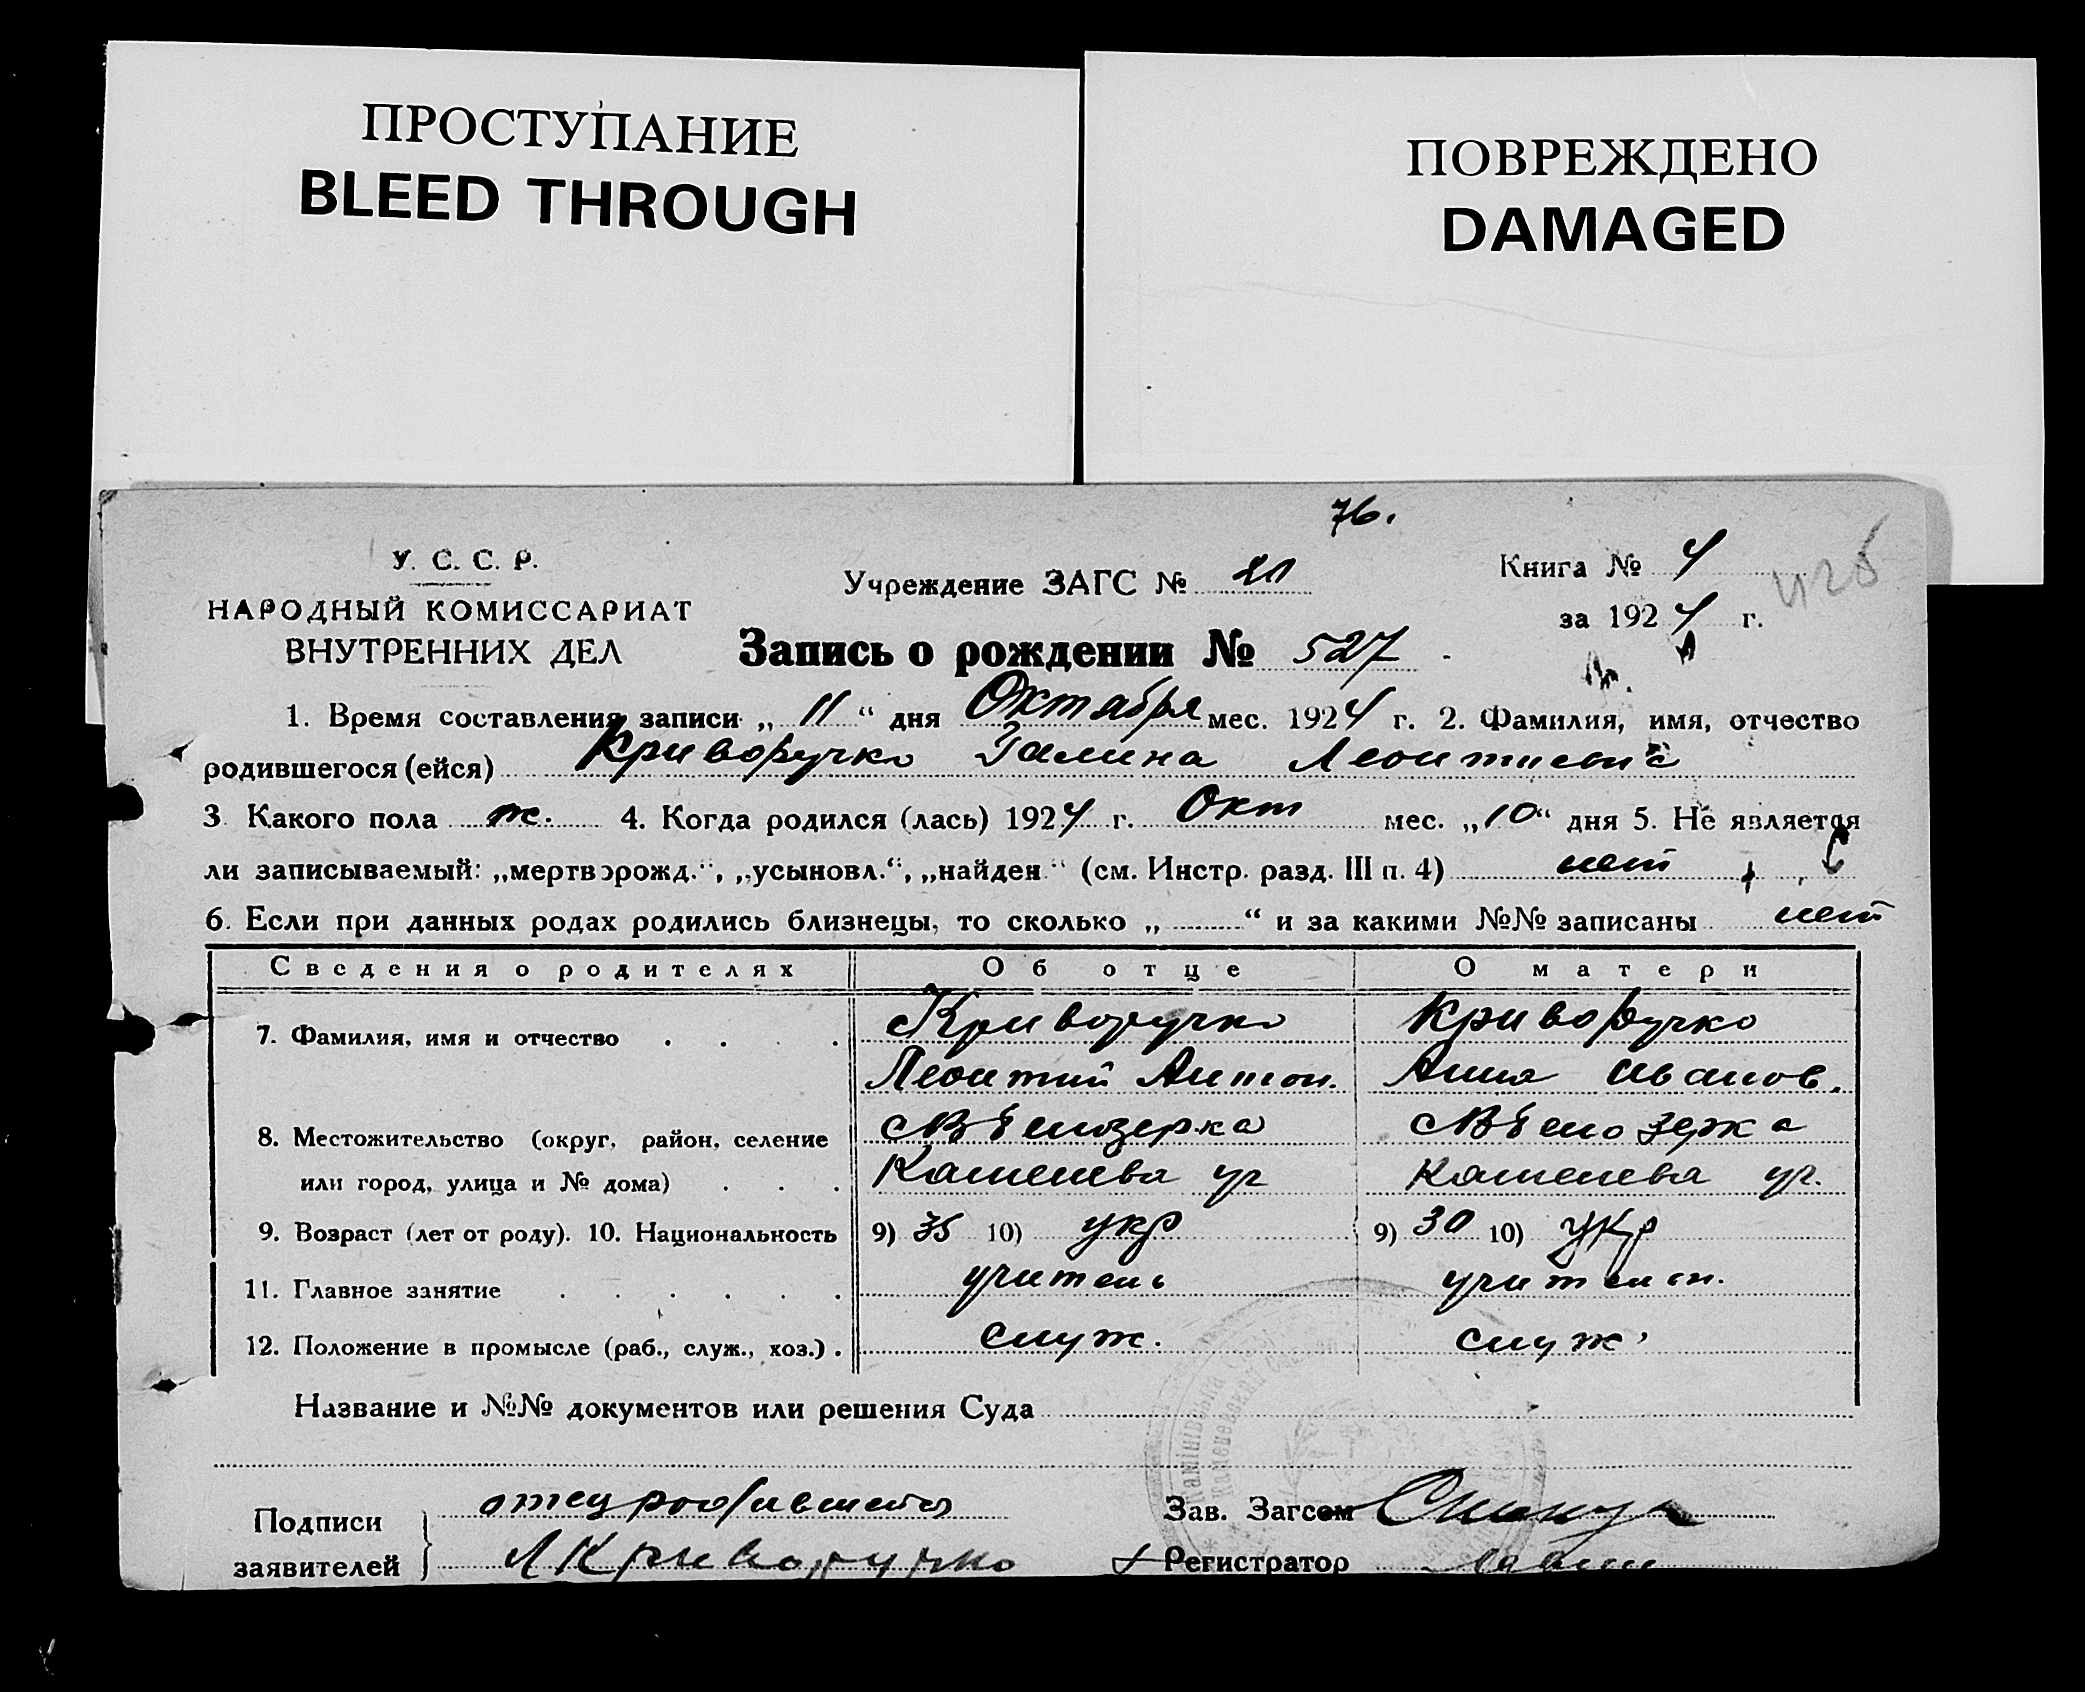 ПРОСТУПАНИЕ
BLEED THROUGH
ПОВРЕЖДЕНО
DAMAGED
76.
У. С. С. Р.
НАРОДНЫЙ КОМИССАРИАТ
ВНУТРЕННИХ ДЕЛ
Учреждение ЗАГС №
Книга № 4
за 1924 г.
Запись о рождении № 527
1. Время составления записи „ 11 “ дня Октября мес. 1924 г. 2. Фамилия, имя, отчество
родившегося (ейся) Криворучко Галина Леонтиевна
3. Какого пола ж. 4. Когда родился (лась) 1924 г. Окт мес. „10“ дня 5. Не является
ли записываемый: „мертворожд.“, „усыновл.“, „найден.“ (см. Инстр. разд. III п. 4) нет
6. Если при данных родах родились близнецы, то сколько „ “ и за какими №№ записаны нет
Сведения о родителях Об отце О матери
7. Фамилия, имя и отчество Криворучко Криворучко
Леонтий Антон. Анна Иванов.
8. Местожительство (округ, район, селение
или город, улица и № дома) ул ул.
9. Возраст (лет от роду). 10. Национальность 9) 35 10) укр 9) 30 10) укр
11. Главное занятие учитель учительн.
12. Положение в промысле (раб., служ., хоз.) служ. служ.
Название и №№ документов или решения Суда
Подписи
заявителей
отец родившейся
Л Криворучко
Зав. Загсом
Регистратор